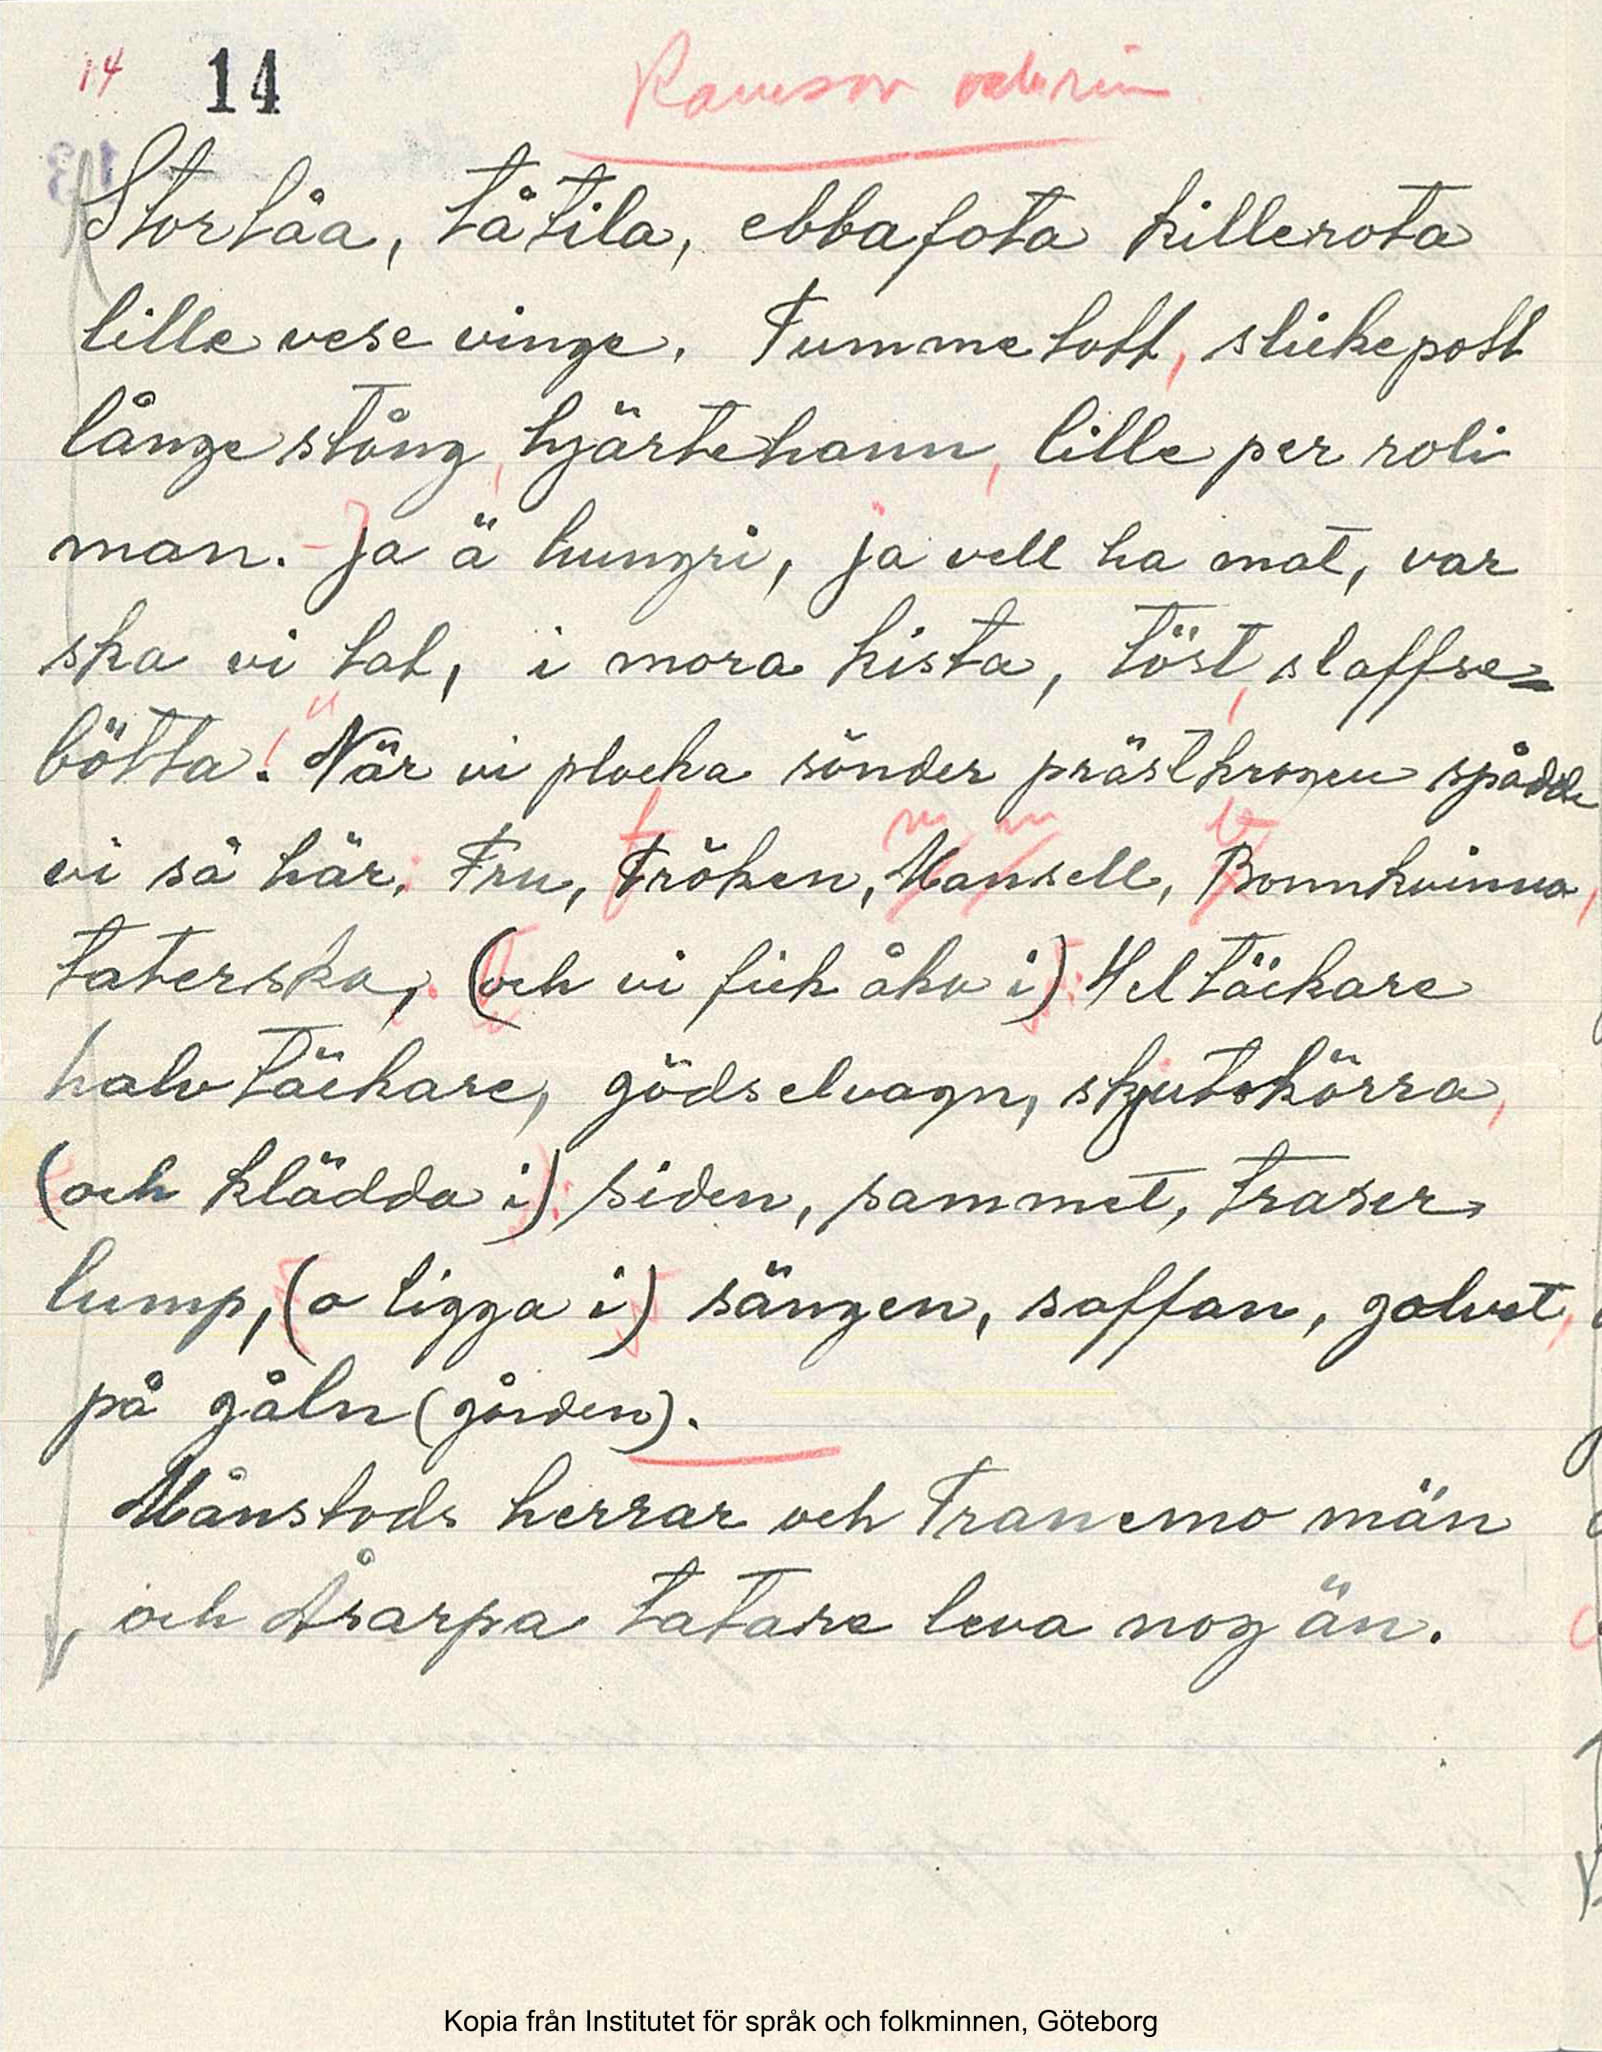 14 14 Ramsor och rim
Stortåa, tåtila, ebbafota killerota
lille vese vinge. Tummetott, slickepott
långe stång, hjärtehann, lille per roli
man. - Ja ä hungri, ja vell ha mat, var
ska vi tat, i mora kista, töst, slaffse=
bötta!" När vi plocka sönder prästkragen spådde
vi så här: Fru, fröken, mamsell, bonnkvinna,
taterska, (och vi fick åka i): Heltäckare
halvtäckare, gödselvagn, skjutskörra,
(och klädda i): siden, sammet, traser,
lump, (o ligga i) sängen, soffan, golvet,
på gåln (gården).
Månstads herrar och Tranemo män
och Åsarpa tatare leva nog än.
Kopia från Institutet för språk och folkminnen, Göteborg